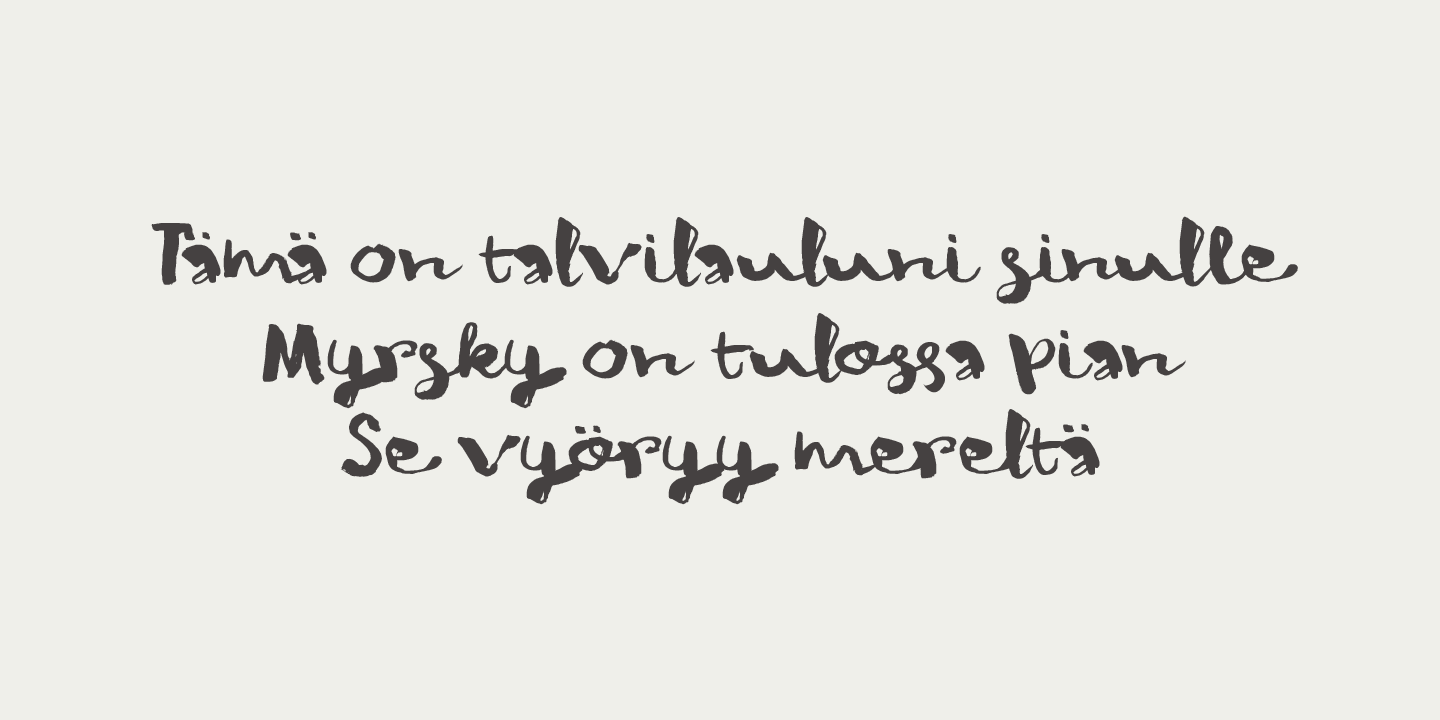 Tämä on talvilauluni sinulle
Myrsky on tulossa pian
Se vyöryy mereltä